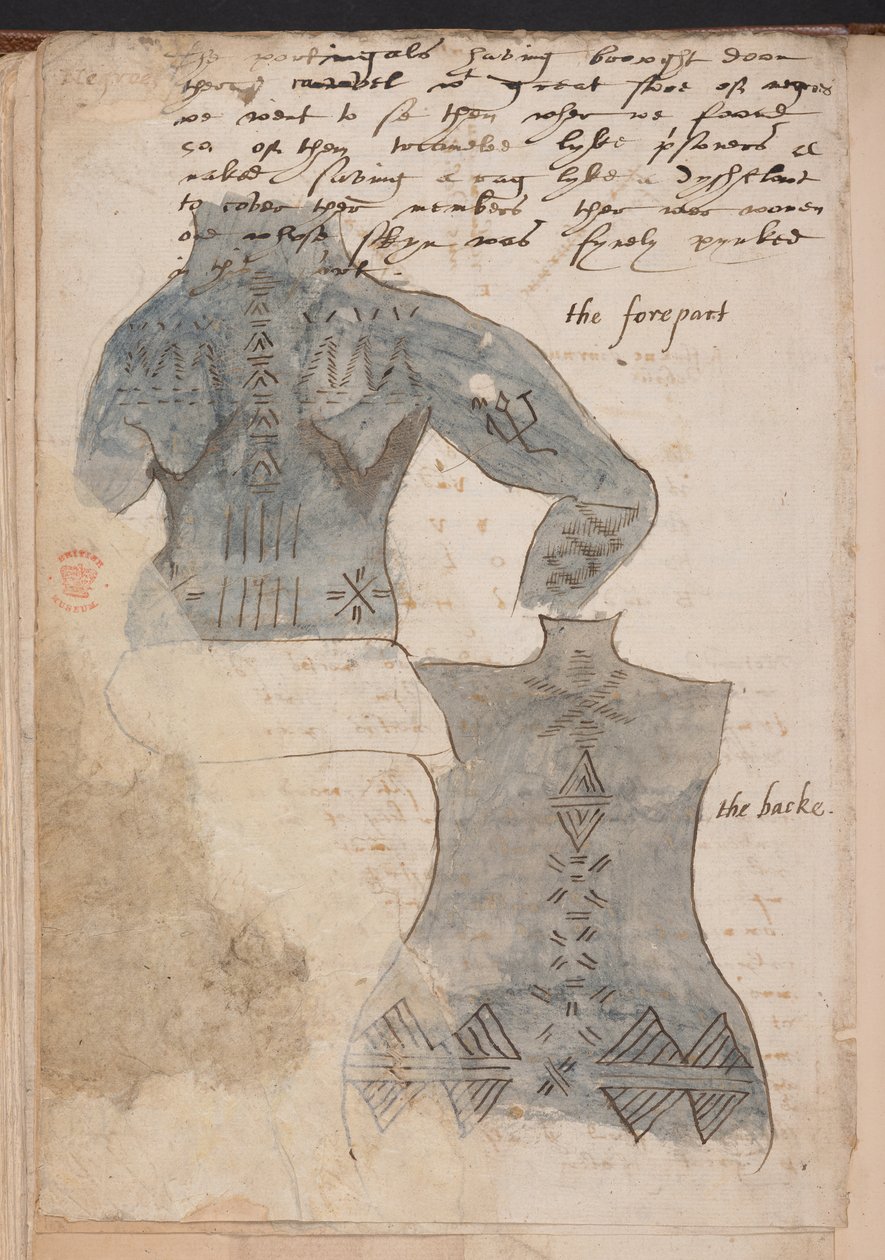 Negroes
the portingals having browght doon
ther caravel wt great store of negros
we went to se them wher we foond
of them lyke p'soners al
naked saving a rag lyke a dyshclout
to cover ther members ther wer women
one whose skyn was fynely pynked
in this sort.
the forepart
BRITISH
MUSEUM
the backe.